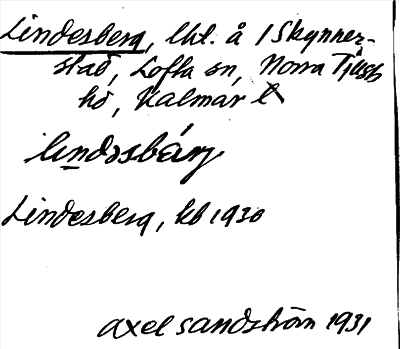 Lindesberg, lht. å 1 Skynner-
stad, Lofta sn, Norra Tjust
hd, Kalmar l
lindəsbárj
Lindesberg, kb 1930
Axel Sandström 1931